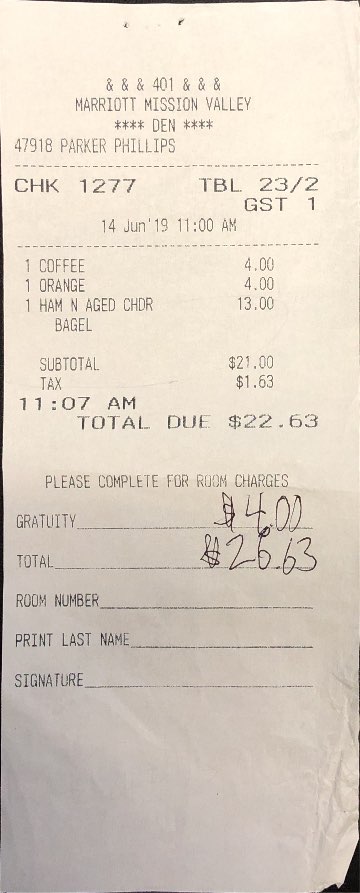 & & & 401 & & &
MARRIOTT MISSION VALLEY
**** DEN ****
47918 PARKER PHILLIPS
CHK 1277 TBL 23/2
GST 1
14 Jun'19 11:00 AM
1 COFFEE 4.00
1 ORANGE 4.00
1 HAM N AGED CHDR 13.00
BAGEL
SUBTOTAL $21.00
TAX $1.63
11:07 AM
TOTAL DUE $22.63
PLEASE COMPLETE FOR ROOM CHARGES
GRATUITY $4.00
TOTAL $26.63
ROOM NUMBER
PRINT LAST NAME
SIGNATURE